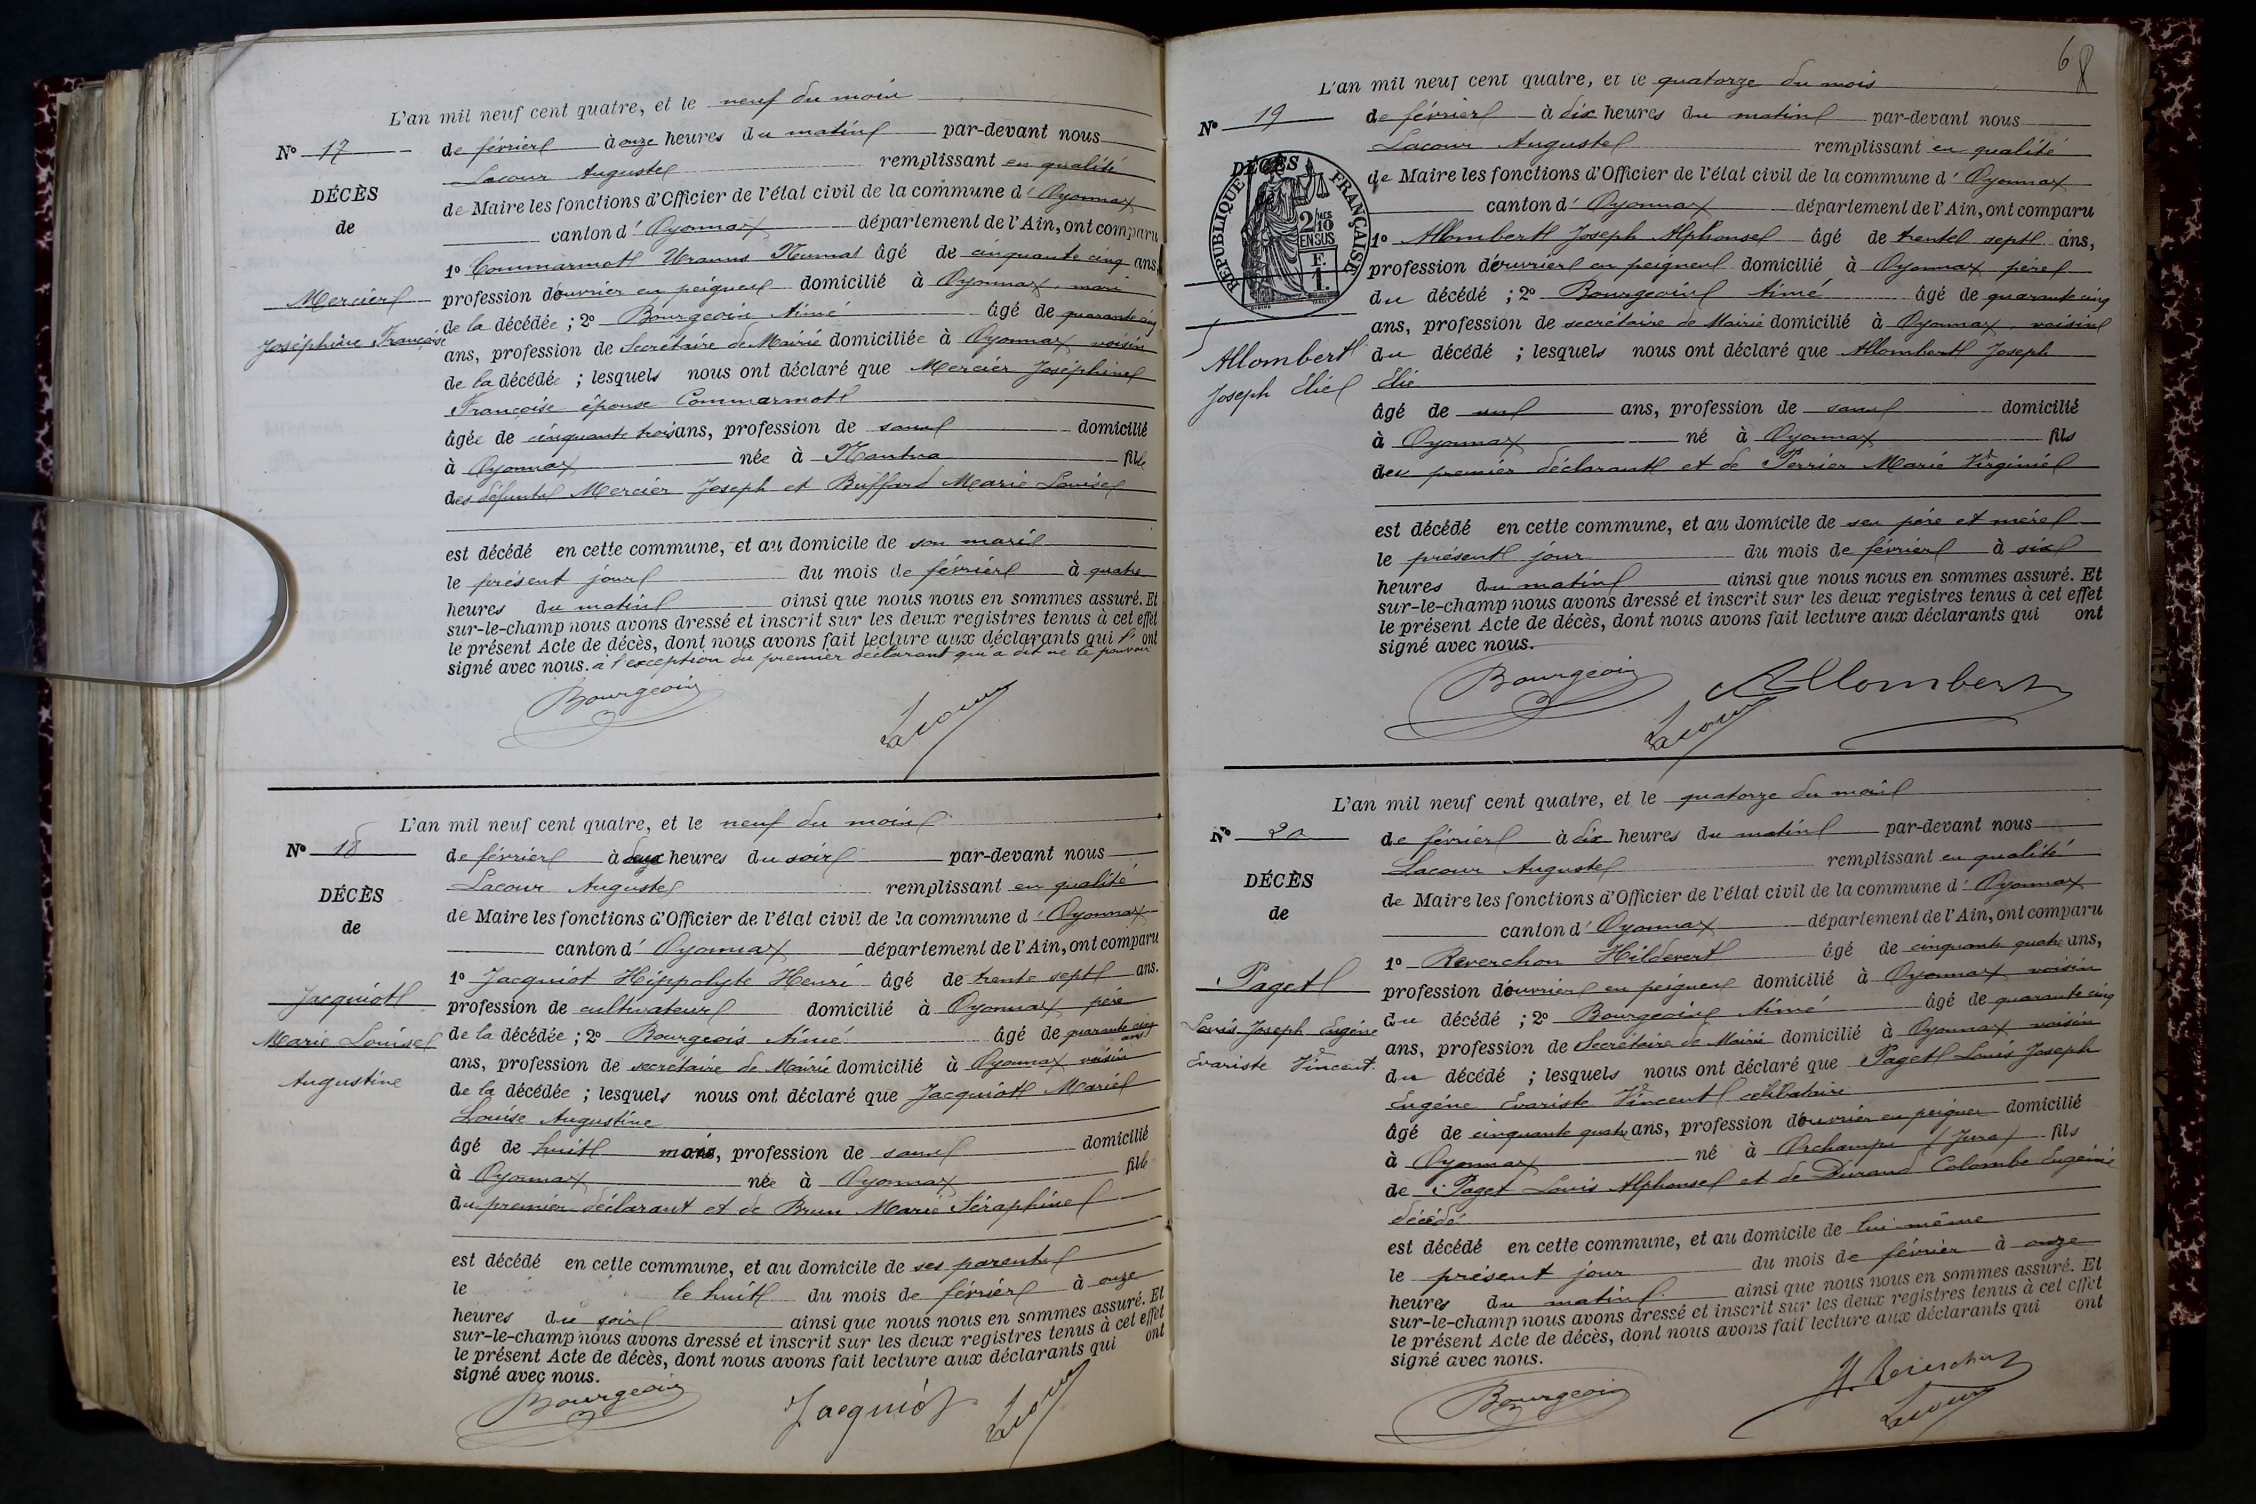 L'an mil neuf cent quatre, et le neuf du mois
N° 17
de février à onze heures du matin par-devant nous
Lacour Auguste remplissant en qualité
DÉCÈS
de Maire les fonctions d'Officier de l'état civil de la commune d' Oyonnax
de
canton d' Oyonnax département de l'Ain, ont comparu
1° Commarmot Uranus Numa âgé de cinquante cinq ans,
Mercier
profession d'ouvrier en peignes domicilié à Oyonnax, mari
Joséphine Françoise
de la décédée ; 2° Bourgeois Aimé âgé de quarante cinq
ans, profession de Secrétaire de Mairie domicilié à Oyonnax voisin
de la décédée ; lesquels nous ont déclaré que Mercier Joséphine
Françoise épouse Commarmot
âgée de cinquante trois ans, profession de sans domicilié
à Oyonnax née à Nantua fille
des défunts Mercier Joseph et Buffard Marie Louise
est décédé en cette commune, et au domicile de son mari
le présent jour du mois de février à quatre
heures du matin ainsi que nous nous en sommes assuré. Et
sur-le-champ nous avons dressé et inscrit sur les deux registres tenus à cet effet
le présent Acte de décès, dont nous avons fait lecture aux déclarants qui l' ont
signé avec nous. à l'exception du premier déclarant qui a dit ne le pouvoir
Bourgeois
Lacour
L'an mil neuf cent quatre, et le neuf du mois
N° 18
de février à deux heures du soir par-devant nous
Lacour Auguste remplissant en qualité
DÉCÈS
de Maire les fonctions d'Officier de l'état civil de la commune d' Oyonnax
de
canton d' Oyonnax département de l'Ain, ont comparu
1° Jacquiot Hippolyte Henri âgé de trente sept ans.
Jacquiot
profession de cultivateur domicilié à Oyonnax père
Marie Louise
de la décédée ; 2° Bourgeois Aimé âgé de quarante cinq
ans
Augustine
ans, profession de secrétaire de Mairie domicilié à Oyonnax voisin
de la décédée ; lesquels nous ont déclaré que Jacquiot Marie
Louise Augustine
âgé de huit mois, profession de sans domicilié
à Oyonnax née à Oyonnax fille
du premier déclarant et de Brun Marie Séraphine
est décédé en cette commune, et au domicile de ses parents
le le huit du mois de février à onze
heures du soir ainsi que nous nous en sommes assuré. Et
sur-le-champ nous avons dressé et inscrit sur les deux registres tenus à cet effet
le présent Acte de décès, dont nous avons fait lecture aux déclarants qui ont
signé avec nous.
Bourgeois
Jacquiot
Lacour
6
L'an mil neuf cent quatre, et le quatorze du mois
N° 19
de février à dix heures du matin par-devant nous
Lacour Auguste remplissant en qualité
DÉCÈS
RÉPUBLIQUE FRANÇAISE
2/10 EN SUS
1 F.
de Maire les fonctions d'Officier de l'état civil de la commune d' Oyonnax
canton d' Oyonnax département de l'Ain, ont comparu
1° Allombert Joseph Alphonse âgé de trente sept ans,
profession d'ouvrier en peignes domicilié à Oyonnax père
du décédé ; 2° Bourgeois Aimé âgé de quarante cinq
ans, profession de secrétaire de Mairie domicilié à Oyonnax, voisin
Allombert
du décédé ; lesquels nous ont déclaré que Allombert Joseph
Joseph Elie
Elie
âgé de un ans, profession de sans domicilié
à Oyonnax né à Oyonnax fils
du premier déclarant et de Perrier Marie Virginie
est décédé en cette commune, et au domicile de ses père et mère
le présent jour du mois de février à six
heures du matin ainsi que nous nous en sommes assuré. Et
sur-le-champ nous avons dressé et inscrit sur les deux registres tenus à cet effet
le présent Acte de décès, dont nous avons fait lecture aux déclarants qui ont
signé avec nous.
Bourgeois
Allombert
Lacour
L'an mil neuf cent quatre, et le quatorze du mois
N° 20
de février à dix heures du matin par-devant nous
Lacour Auguste remplissant en qualité
DÉCÈS
de Maire les fonctions d'Officier de l'état civil de la commune d' Oyonnax
de
canton d' Oyonnax département de l'Ain, ont comparu
1° Reverchon Hildevert âgé de cinquante quatre ans,
Paget
profession d'ouvrier en peignes domicilié à Oyonnax voisin
Louis Joseph Eugène
du décédé ; 2° Bourgeois Aimé âgé de quarante cinq
Evariste Vincent.
ans, profession de Secrétaire de Mairie domicilié à Oyonnax voisin
du décédé ; lesquels nous ont déclaré que Paget Louis Joseph
Eugène Evariste Vincent célibataire
âgé de cinquante quatre ans, profession d'ouvrier en peignes domicilié
à Oyonnax né à Orchamps (Jura) fils
de Paget Louis Alphonse et de Durand Colombe Eugénie
décédé
est décédé en cette commune, et au domicile de lui-même
le présent jour du mois de février à onze
heures du matin ainsi que nous nous en sommes assuré. Et
sur-le-champ nous avons dressé et inscrit sur les deux registres tenus à cet effet
le présent Acte de décès, dont nous avons fait lecture aux déclarants qui ont
signé avec nous.
Bourgeois
H. Reverchon
Lacour